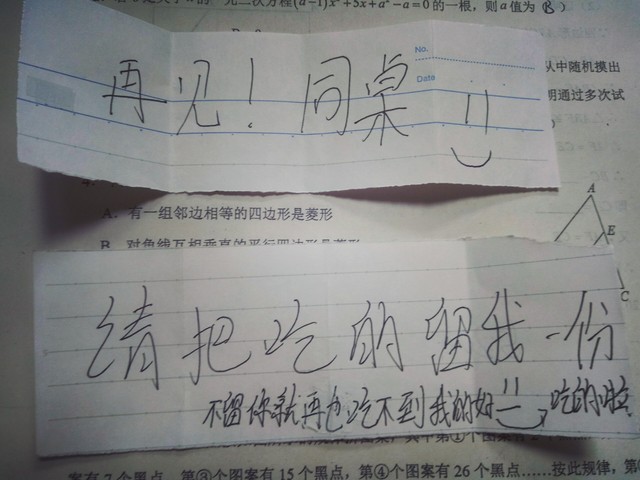 元二次方程(a-1)x²+5x+a²-a=0的一根，则a值为(B)
No.
再见！同桌
Date
队中随机摸出
明通过多次试
A．有一组邻边相等的四边形是菱形
B．对角线互相垂直的平行四边形是菱形
A
E
C
请把吃的留我一份
不留你就再也吃不到我的好吃的啦
案有7个黑点，第③个图案有15个黑点，第④个图案有26个黑点……按此规律，第